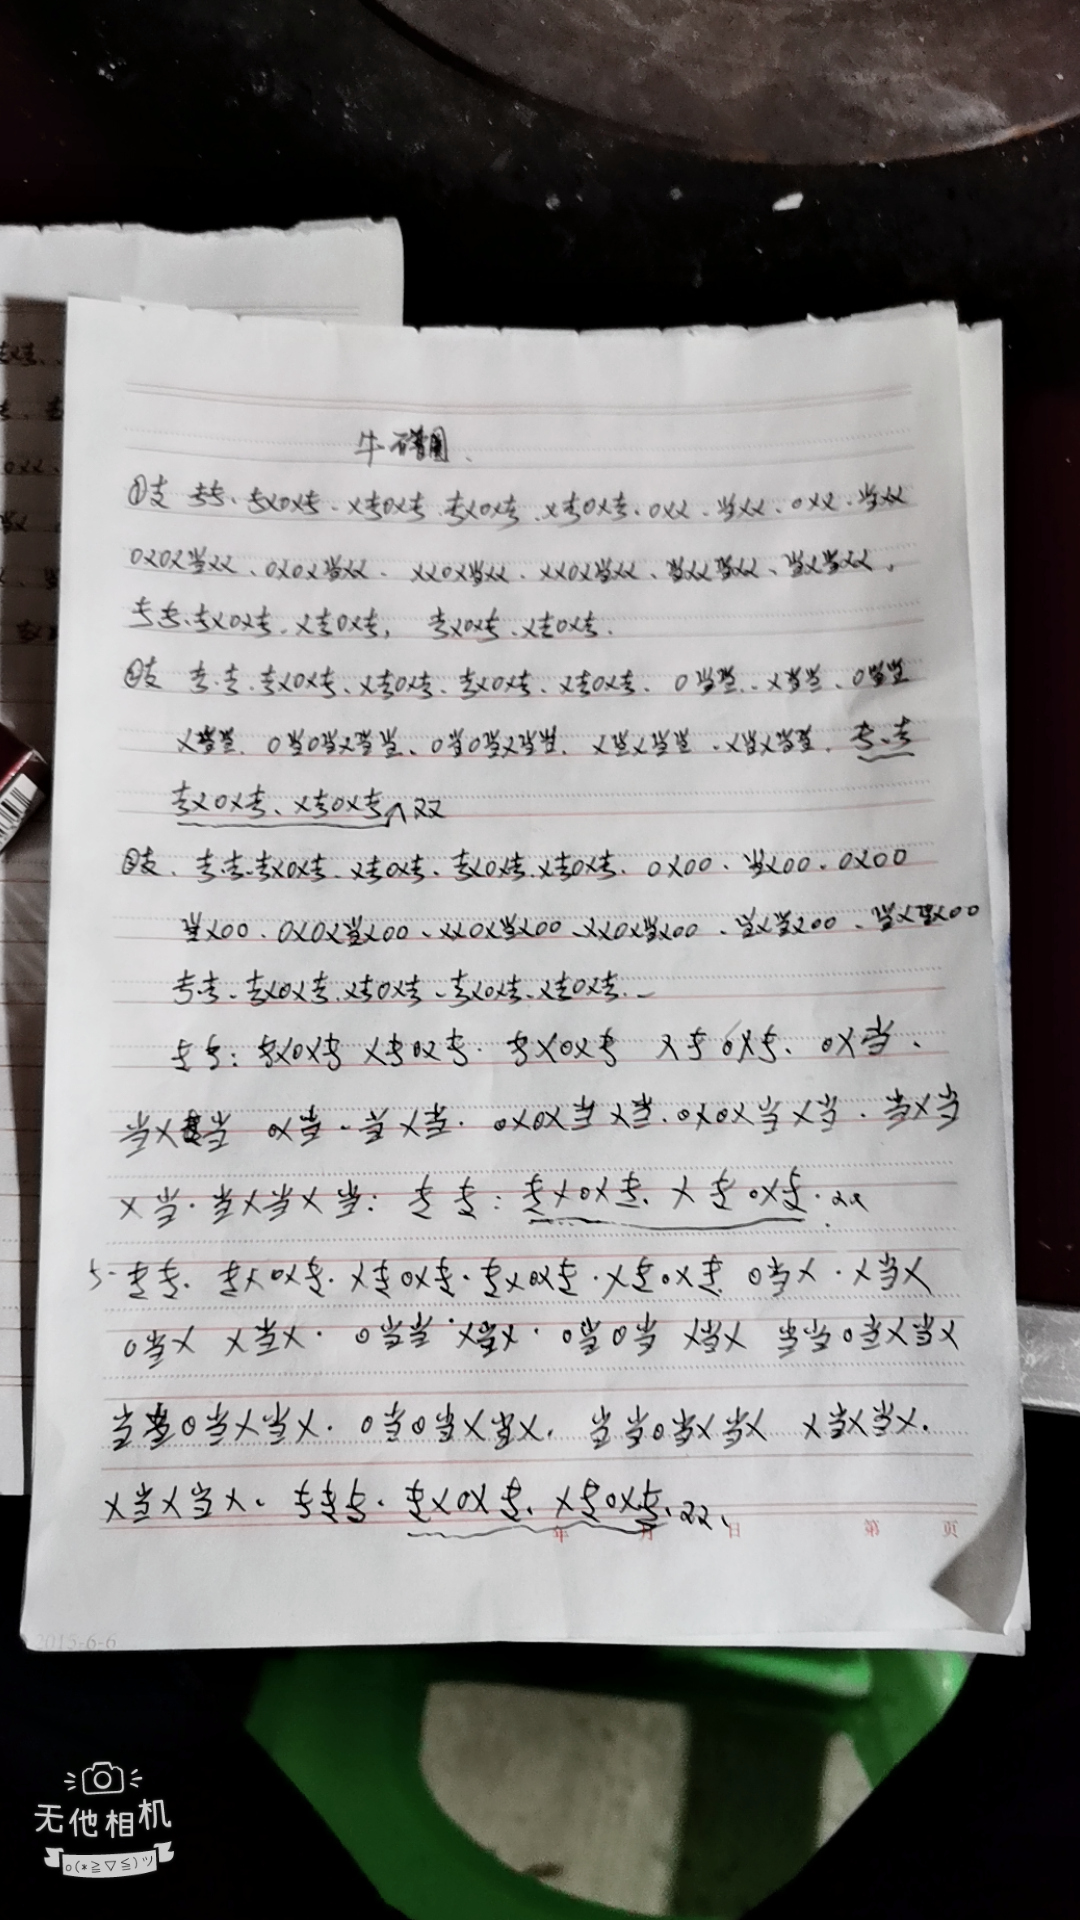 ①支 专专、专X0X专、X专0X专、专X0X专、X专0X专、0XX、当XX、0XX、当XX
0X0X当XX、0X0X当XX、XX0X当XX、XX0X当XX、当XX当XX、当X当XX,
专专、专X0X专、X专0X专, 专X0X专、X专0X专.
②支 专·专、专X0X专、X专0X专、专X0X专、X专0X专、0当当、X当当、0当当
X当当、0当0当X当当、0当0当X当当、X当X当当、X当X当当、专、专
专X0X专、X专0X专 XX
③支、专·专·专X0X专、X专0X专、专X0X专、X专0X专、0X00、当X00、0X00
当X00、0X0X当X00、XX0X当X00、XX0X当X00、当X当X00、当X当X00
专·专、专X0X专、X专0X专、专X0X专、X专0X专、
专专:专X0X专 X专0X专· 专X0X专 X专0X专、0X当、
当X当 0X当·当X当·0X0X当X当·0X0X当X当·当X当
X当·当X当X当: 专专:专X0X专、X专0X专·XX
5·专专、专X0X专·X专0X专·专X0X专·X专0X专 0当X·X当X
0当X X当X· 0当当·X当X· 0当0当 X当X 当当0当X当X
当当0当X当X· 0当0当X当X、当当0当X当X X当X当X.
X当X当X、专专专·专X0X专、X专0X专、XX、
年 月 日 第 页
2015-6-6
无他相机
o(*≧▽≦)ツ